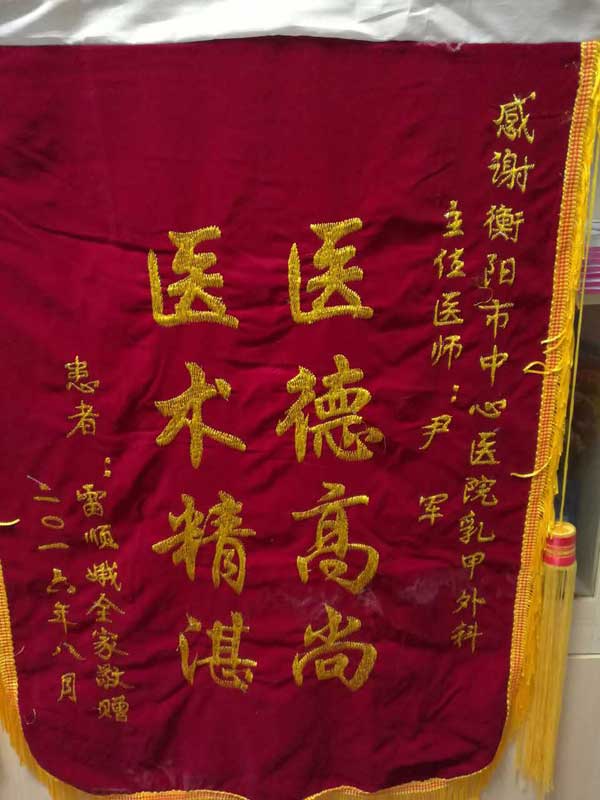 感谢衡阳市中心医院乳甲外科
主任医师：尹军
医德高尚
医术精湛
患者：雷顺娥全家敬赠
二〇一六年八月